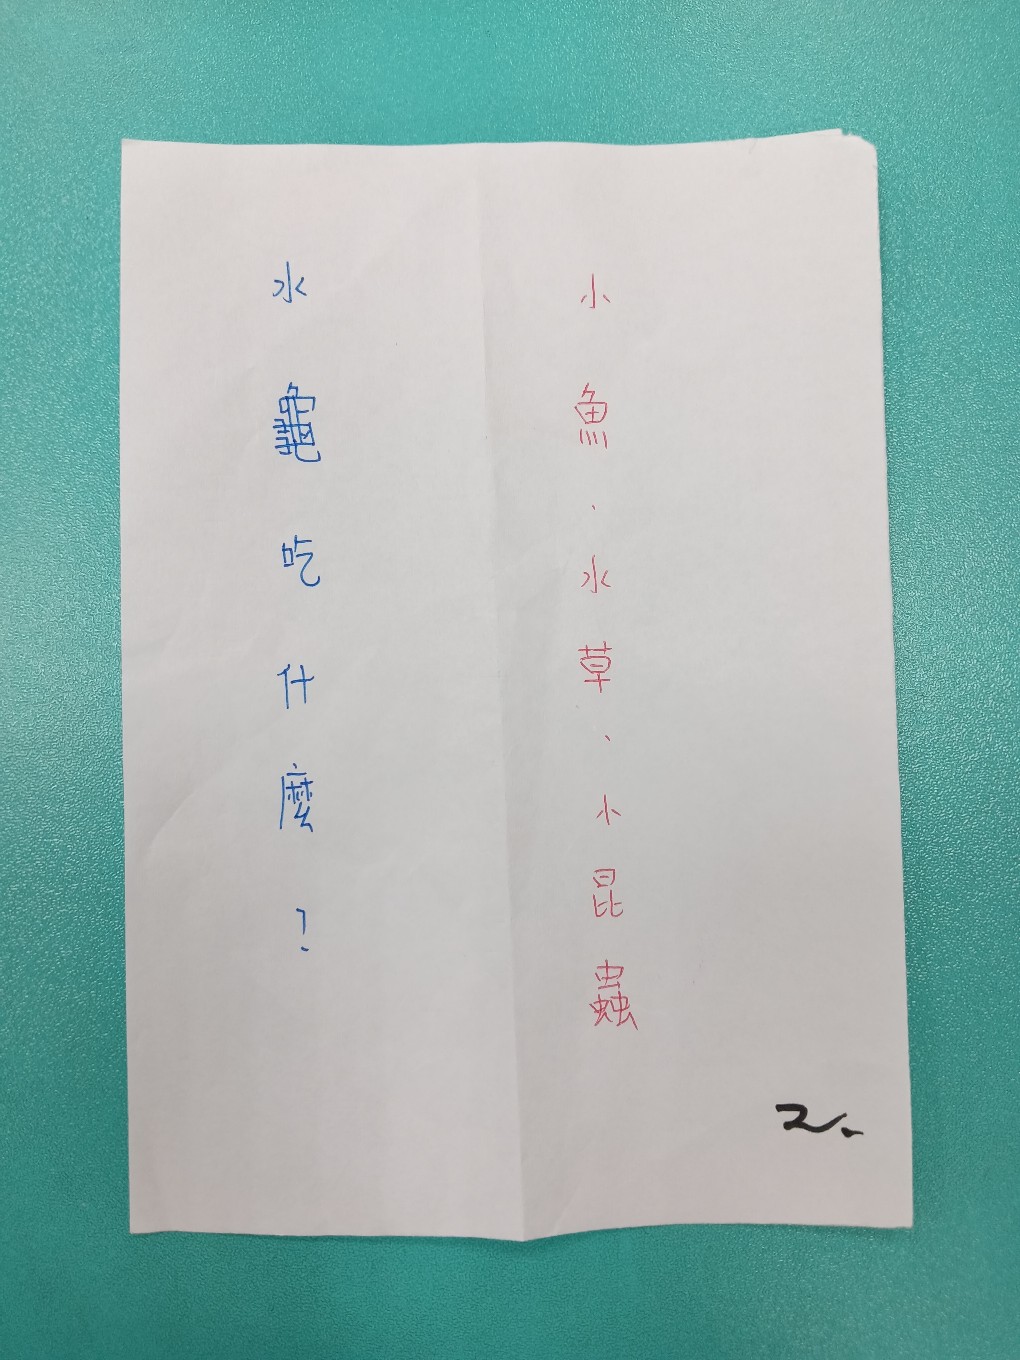 水龜吃什麼？
小魚、水草、小昆蟲
2.